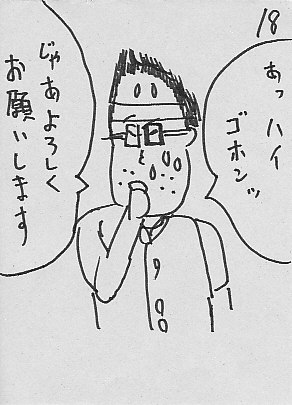 18
あっハイ
ゴホンッ
じゃあよろしく
お願いします